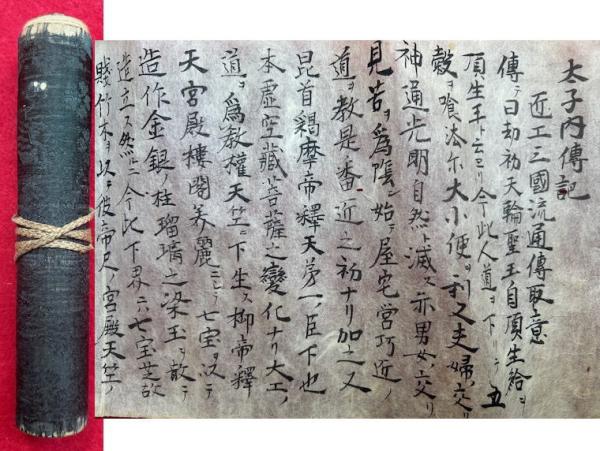 太子内傳記
近工三國流通傳取意
傳ヲ曰劫初天輪聖王自頂生給ヲ
頂生王ト云ヘリ今此人道ヲ下リテ五
穀ヲ喰法尓大小便ヲ利又夫婦ノ交リ
神通光明自然ト滅ス亦男女交リ
見苦ヲ為隂ニ始テ屋宅営巧近ノ
道ヲ教是番近之初ナリ加之又
昆首羯摩帝釋天第一ノ臣下也
本虚空藏菩薩之變化ナリ大工ノ
道ヲ為教權天竺ニ下生ス抑帝釋
天宮殿樓閣美麗ニシテ七宝ヲ以テ
造作金銀ノ柱瑠璃之梁玉ヲ散テ
造立ス然ルニ今此下界ニハ七宝芝故
賤竹木ヲ以テ彼帝尺ノ宮殿天竺ノ